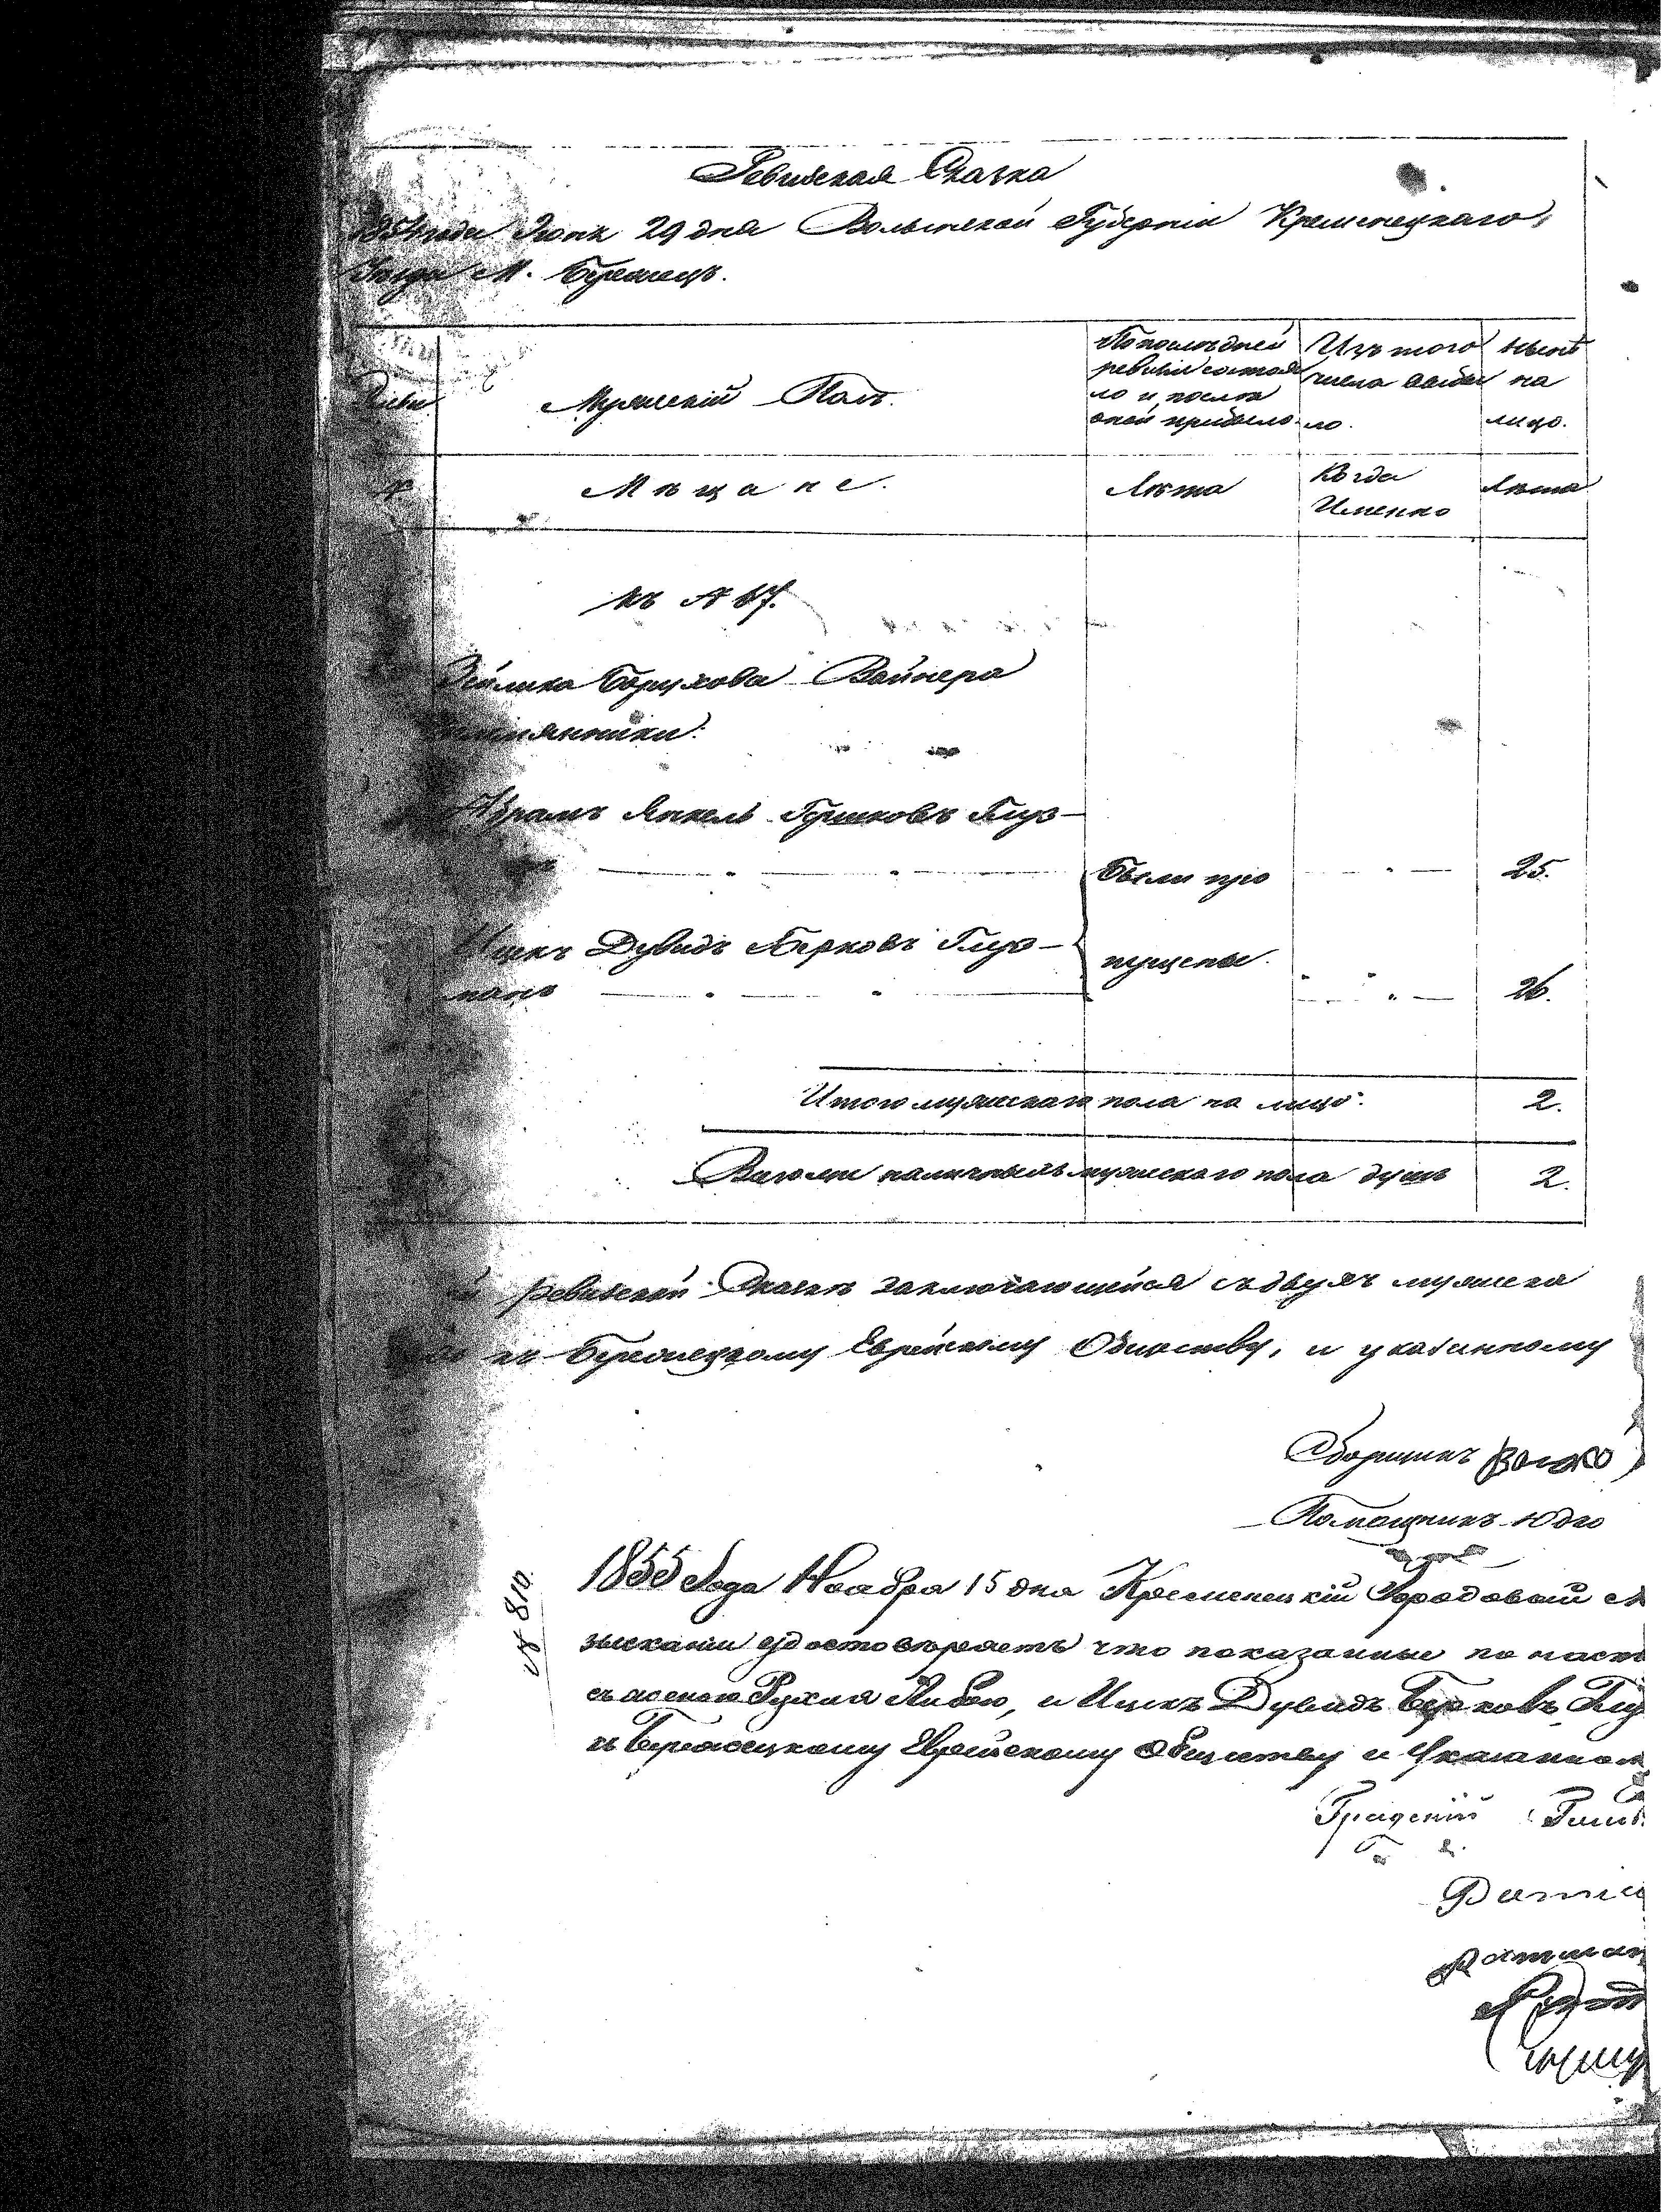 Ревизская Сказка
1854 года Июня 29 дня Волынской Губерніи Кременецкаго
Уезда М. Бережецъ.
Мужескій Полъ.
По последней
ревизіи состоя
ло и после
оной прибыло.
Изъ того
числа выбы
ло.
ныне
на
лицо.
Мѣщане.
Лѣта
Когда
Именно
Лѣта
къ № 17.
Борухова Вайнера
племянники:
Абрамъ Янкель Гершковъ Глуз-
были про
25.
Ицекъ Дувидъ Берковъ Глуз-
пущены.
манъ
26.
Итого мужескаго пола на лицо.
2.
Всего наличныхъ мужескаго пола душъ
2.
ревизской Сказке заключающейся съ двухъ мужеска
къ Бережецкому Еврейскому Обществу, и указанному
Сборщикъ
Помощникъ Юдко
№ 810.
1855 Года Ноября 15 дня Кременецкій Городовой М
зысканіи удостоверяетъ что показанные по наст
съ женою Рухля Либою, и Ицекъ Дувидъ Берковъ Глу
къ Бережецкому Еврейскому обществу и Указанном
Градскій Глав
Ратма
Ратман